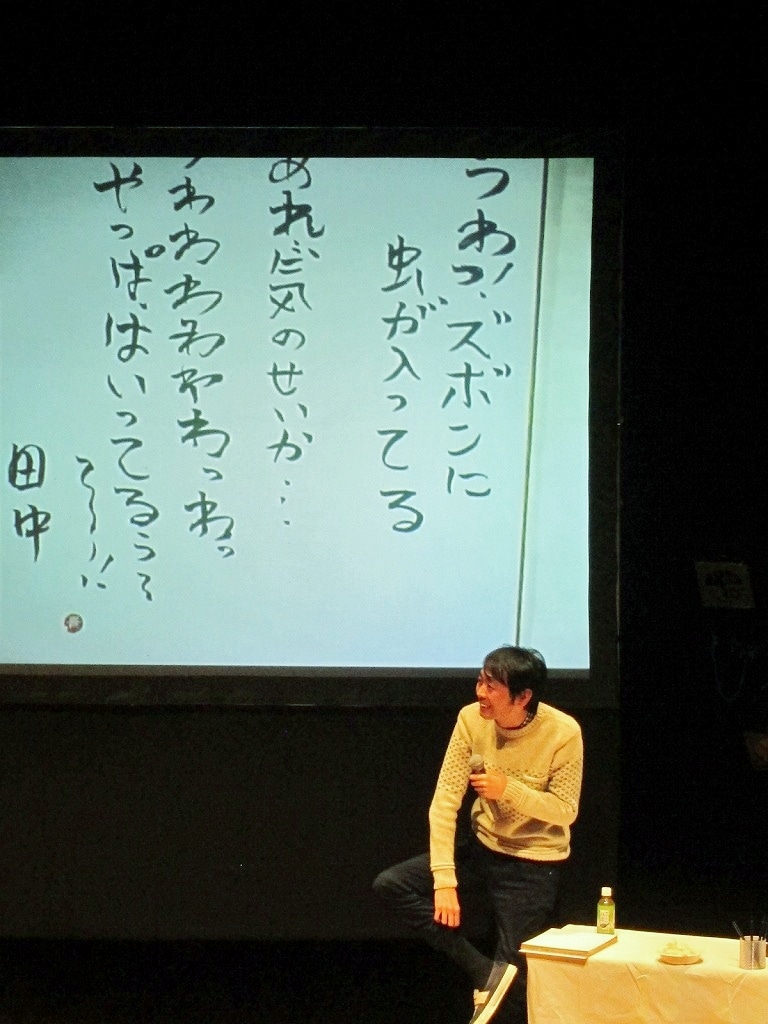 うわっ!ズボンに
虫が入ってる
あれ?気のせいか…
わわわわわわっわっ
やっぱはいってるぅぅ
て～～!!
田中